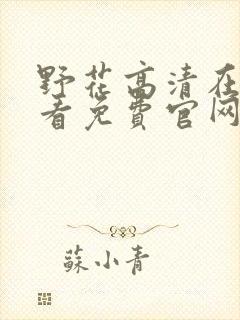 野花高清在
看免费官网
蘇小青